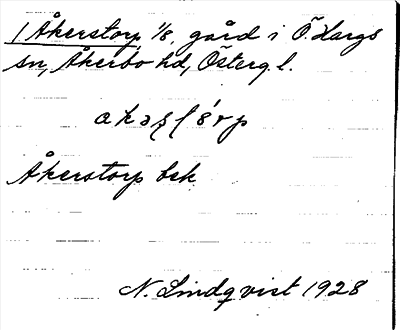 1 Åkerstorp 1/8, gård i Ö. Hargs
sn, Åkerbo hd, Österg. l.
Åkerstorp bsk
N. Lindqvist 1928